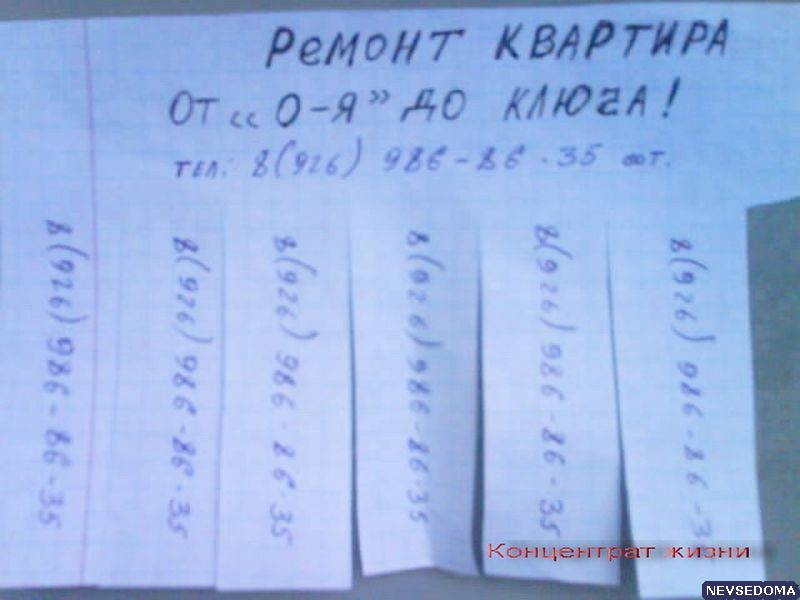 РЕМОНТ КВАРТИРА
ОТ „О-Я” ДО КЛЮЧА!
тел: 8(926) 986-86-35 сот.
8(926) 986-86-35
8(926) 986-86-35
8(926) 986-86-35
8(926) 986-86-35
8(926) 986-86-35
8(926) 986-86-3
Концентрат жизни
NEVSEDOMA